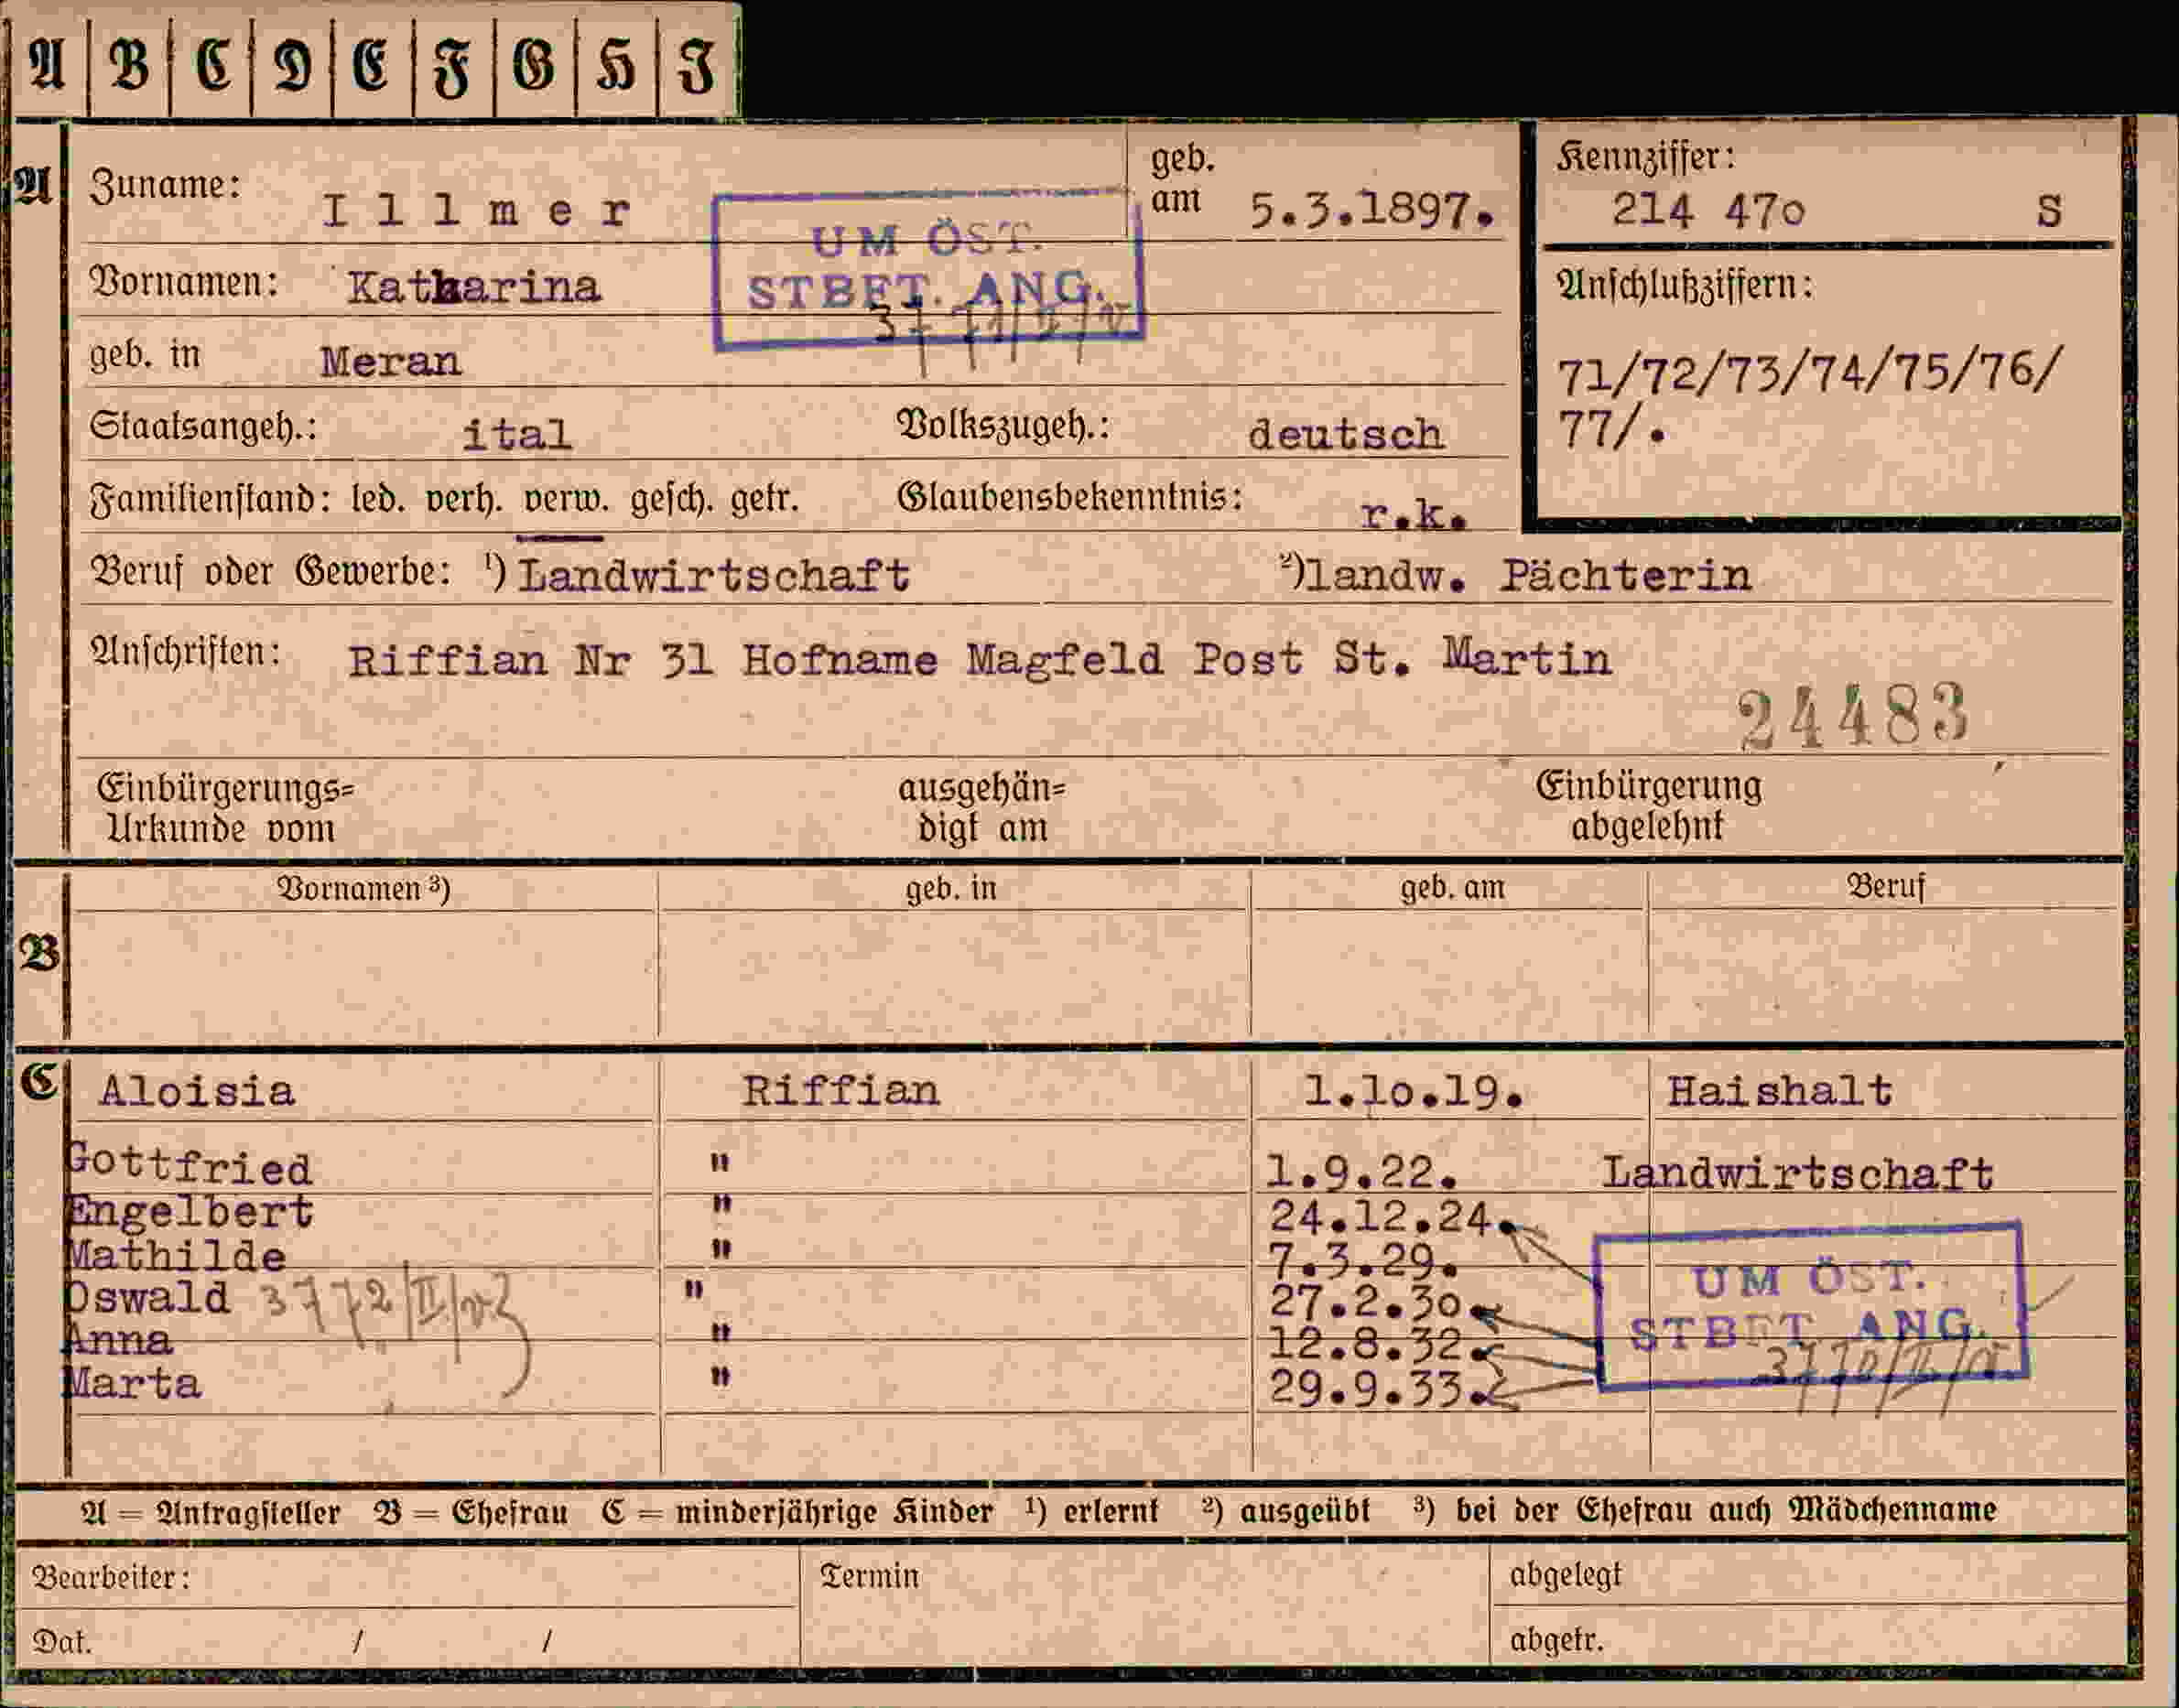 A B C D E F G H I
A Zuname: Illmer geb. am 5.3.1897. Kennziffer: 214 470 S
UM ÖST.
STBET. ANG.
Vornamen: Katharina Anschlußziffern:
geb. in Meran 71/72/73/74/75/76/
77/.
Staatsangeh.: ital Volkszugeh.: deutsch
Familienstand: led. verh. verw. gesch. getr. Glaubensbekenntnis: r.k.
Beruf oder Gewerbe: ¹) Landwirtschaft ²)landw. Pächterin
Anschriften: Riffian Nr 31 Hofname Magfeld Post St. Martin
24483
Einbürgerungs= ausgehän= Einbürgerung
Urkunde vom digt am abgelehnt
Vornamen ³) geb. in geb. am Beruf
B
C Aloisia Riffian 1.10.19. Haishalt
Gottfried " 1.9.22. Landwirtschaft
Engelbert " 24.12.24.
Mathilde " 7.3.29.
Oswald " 27.2.30
Anna " 12.8.32.
Marta " 29.9.33.
UM ÖST.
STBET ANG.
A = Antragsteller B = Ehefrau C = minderjährige Kinder ¹) erlernt ²) ausgeübt ³) bei der Ehefrau auch Mädchenname
Bearbeiter: Termin abgelegt
Dat. / / abgetr.